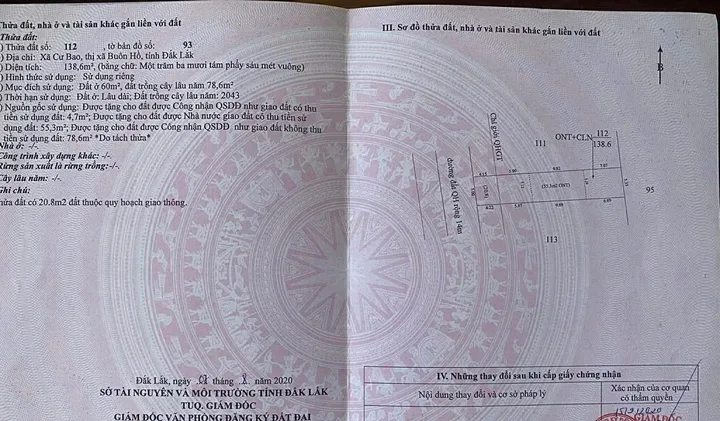 Thửa đất, nhà ở và tài sản khác gắn liền với đất
Thửa đất:
) Thửa đất số: 112 , tờ bản đồ số: 93
) Địa chỉ: Xã Cư Bao, thị xã Buôn Hồ, tỉnh Đắk Lắk
) Diện tích: 138,6m², (bằng chữ: Một trăm ba mươi tám phẩy sáu mét vuông)
) Hình thức sử dụng: Sử dụng riêng
) Mục đích sử dụng: Đất ở 60m², đất trồng cây lâu năm 78,6m²
) Thời hạn sử dụng: Đất ở: Lâu dài; Đất trồng cây lâu năm: 2043
) Nguồn gốc sử dụng: Được tặng cho đất được Công nhận QSDĐ như giao đất có thu
tiền sử dụng đất: 4,7m²; Được tặng cho đất được Nhà nước giao đất có thu tiền sử
dụng đất: 55,3m²; Được tặng cho đất được Công nhận QSDĐ như giao đất không thu
tiền sử dụng đất: 78,6m² *Do tách thửa*
Nhà ở: -/-.
Công trình xây dựng khác: -/-.
Rừng sản xuất là rừng trồng: -/-.
Cây lâu năm: -/-.
Ghi chú:
hửa đất có 20.8m2 đất thuộc quy hoạch giao thông.
Đắk Lắk, ngày tháng năm 2020
SỞ TÀI NGUYÊN VÀ MÔI TRƯỜNG TỈNH ĐẮK LẮK
TUQ. GIÁM ĐỐC
GIÁM ĐỐC VĂN PHÒNG ĐĂNG KÝ ĐẤT ĐAI
III. Sơ đồ thửa đất, nhà ở và tài sản khác gắn liền với đất
B
Chỉ giới QHGT
111
ONT+CLN
112
138.6
(55.3m2 ONT)
95
113
đường đất QH rộng 14m
IV. Những thay đổi sau khi cấp giấy chứng nhận
Nội dung thay đổi và cơ sở pháp lý
Xác nhận của cơ quan
có thẩm quyền
GIÁM ĐỐC